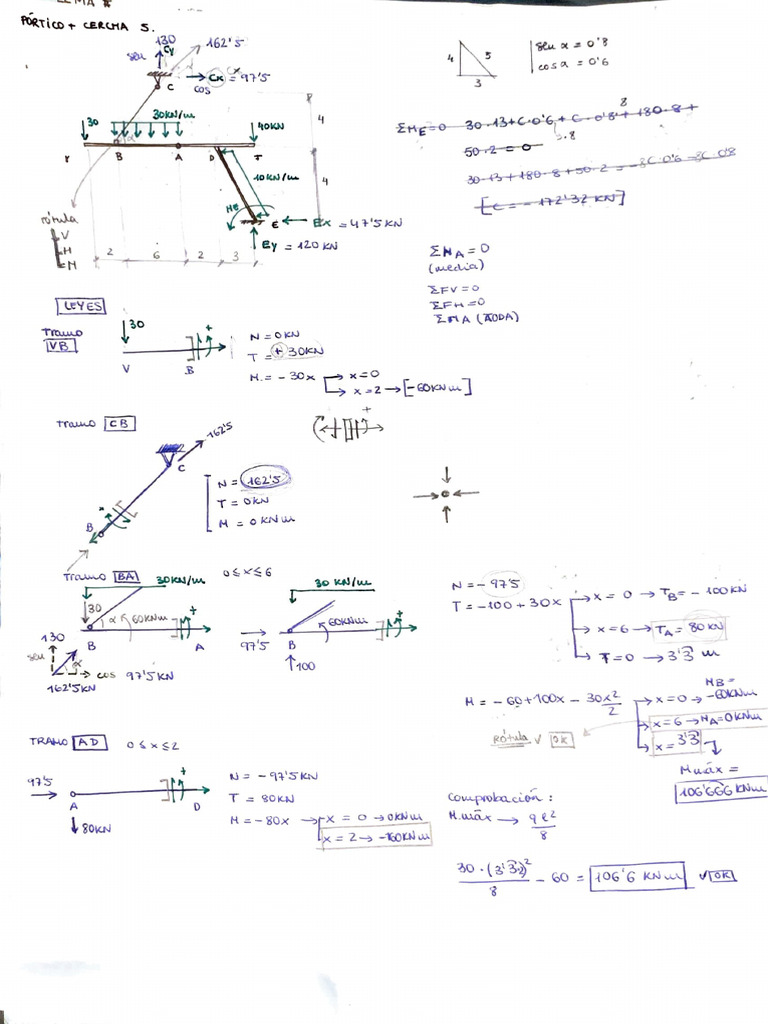 PÓRTICO + CERCHA 5.
130
162'5
sen
Cy
C
Cx = 97'5
cos
30
30KN/m
40KN
4
B
α
A
D
T
10KN/m
4
ME
E
Ex = 47'5 KN
Ey = 120 KN
rótula
V
H
N
2
6
2
3
4
5
3
sen α = 0'8
cos α = 0'6
ΣME=0 30·13+C·0'6+C·0'8+180·8+
8
·8
50·2 = 0
30·13+180·8+50·2 = -3C·0'6-3C·0'8
[C = -172'32 KN]
ΣMA = 0
(media)
ΣFV=0
ΣFH=0
ΣMA (TODA)
LEYES
Tramo
VB
30
V
B
+
N = 0KN
T = + 30KN
M = - 30x
x=0
x=2 → [-60KNm]
Tramo CB
162'5
C
B
+
N = 162'5
T = 0KN
M = 0KNm
+
Tramo BA 0≤x≤6
30KN/m
30
α
60KNm
+
B
A
130
sen
α
cos 97'5KN
162'5KN
30 KN/m
60KNm
+
97'5
B
100
N = - 97'5
T = -100 + 30x
x = 0 → TB = - 100KN
x=6 → TA = 80KN
T=0 → 3'3 m
M = - 60+100x - 30x²/2
x=0 → MB = -60KNm
x=6 → MA=0KNm
x = 3'3
Rótula √ OK
Mmáx =
106'666 KNm
TRAMO AD 0≤x≤2
97'5
A
80KN
+
D
N = - 97'5KN
T = 80KN
M = -80x
x = 0 → 0KNm
x = 2 → -160KNm
Comprobación:
M.máx → qℓ²/8
30·(3'3·2)²/8 - 60 = 106'6 KNm √ OK